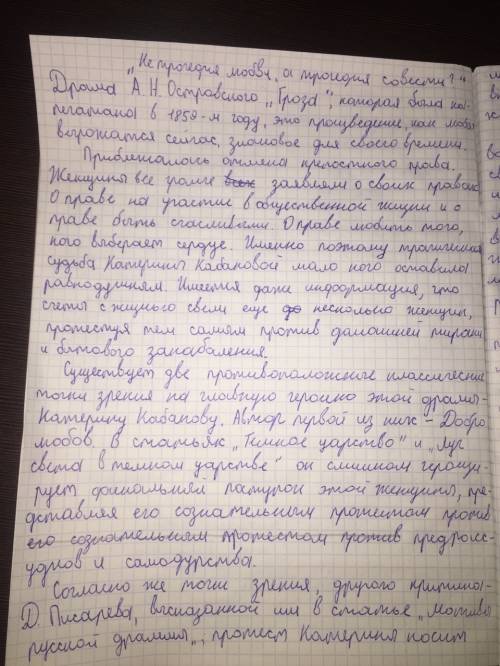 „Не трогедия любви, а трогедия совести?"
Драма А.Н. Островского „Гроза", которая была на-
печатана в 1859-м году, это произведение, как любят
выражатся сейчас, знаковое для своего времени.
Приближалась отмена крепостного права.
Женщины все громче заявляли о своих правах
О праве на участие в общественной жизни и о
праве быть счасливыми. О праве любить того,
кого выберает сердце. Именно поэтому трагическая
судьба Катерины Кабановой мало кого оставила
равнодушнем. Имеется даже информация, что
счеты с жизнью свели еще несколько женщин,
протестуя тем самым против домашней тирании
и бытового закабаления.
Существует две противоположные классические
точки зрения на главную героиню этой драмы-
Катерину Кабанову. Автор первой из них – Добро
любов. В статьях „Темное царство" и „Луч
света в темном царстве" он слишком героизи-
рует финальный паступок этой женщины, пре-
дставляя его сознательным протестом против
его сознательным протестом против предрасс-
удков и самодурства.
Согласно же точки зрения, другого критика-
Д. Писарева, высказанной им в статье „Мотивы
русской драммы", протест Катерины носит